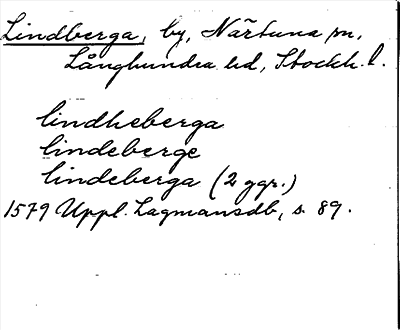 Lindberga, by, Närtuna sn,
Långhundra hd, Stockh. l.
lindheberga
lindeberge
lindeberga (2 ggr.)
1579 Uppl. Lagmansdb, s. 89.